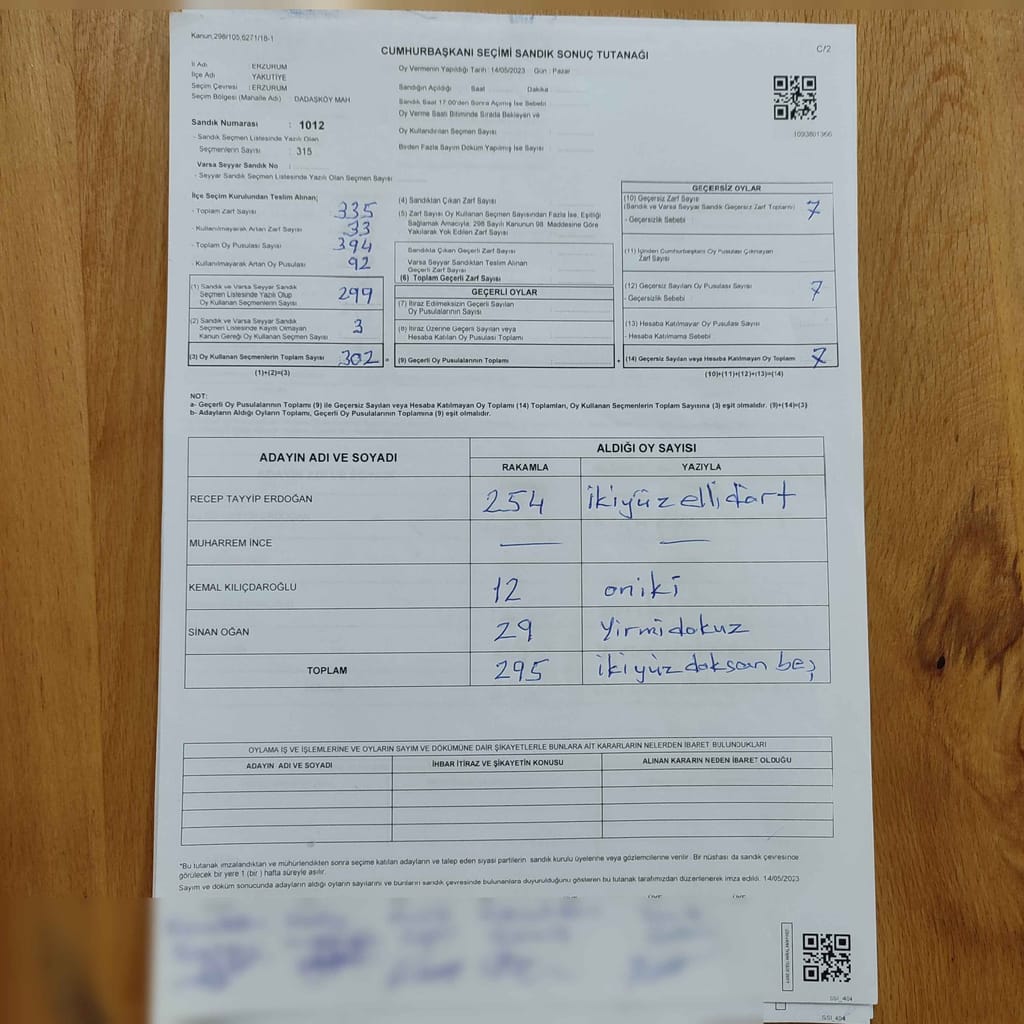 Kanun, 298/105,6271/18-1
C/2
CUMHURBAŞKANI SEÇİMİ SANDIK SONUÇ TUTANAĞI
İl Adı ERZURUM
İlçe Adı YAKUTİYE
Seçim Çevresi : ERZURUM
Seçim Bölgesi (Mahalle Adı) DADAŞKÖY MAH.
Oy Vermenin Yapıldığı Tarih : 14/05/2023 Gün : Pazar
Sandığın Açıldığı Saat Dakika
Sandık Saat 17:00'den Sonra Açılmış İse Sebebi
Oy Verme Saati Bitiminde Sırada Bekleyen ve
Oy Kullandırılan Seçmen Sayısı
Birden Fazla Sayım Döküm Yapılmış İse Sayısı
1093801366
Sandık Numarası : 1012
- Sandık Seçmen Listesinde Yazılı Olan
Seçmenlerin Sayısı : 315
Varsa Seyyar Sandık No :
- Seyyar Sandık Seçmen Listesinde Yazılı Olan Seçmen Sayısı
İlçe Seçim Kurulundan Teslim Alınan;
- Toplam Zarf Sayısı 335
- Kullanılmayarak Artan Zarf Sayısı 33
- Toplam Oy Pusulası Sayısı 394
- Kullanılmayarak Artan Oy Pusulası 92
(1) Sandık ve Varsa Seyyar Sandık
Seçmen Listesinde Yazılı Olup
Oy Kullanan Seçmenlerin Sayısı 299
(2) Sandık ve Varsa Seyyar Sandık
Seçmen Listesinde Kayıtlı Olmayan
Kanun Gereği Oy Kullanan Seçmen Sayısı 3
(3) Oy Kullanan Seçmenlerin Toplam Sayısı 302 =
(1)+(2)=(3)
(4) Sandıktan Çıkan Zarf Sayısı
(5) Zarf Sayısı Oy Kullanan Seçmen Sayısından Fazla İse, Eşitliği
Sağlamak Amacıyla; 298 Sayılı Kanunun 98. Maddesine Göre
Yakılarak Yok Edilen Zarf Sayısı
Sandıkta Çıkan Geçerli Zarf Sayısı
Varsa Seyyar Sandıktan Teslim Alınan
Geçerli Zarf Sayısı
(6) Toplam Geçerli Zarf Sayısı
GEÇERLİ OYLAR
(7) İtiraz Edilmeksizin Geçerli Sayılan
Oy Pusulalarının Sayısı
(8) İtiraz Üzerine Geçerli Sayılan veya
Hesaba Katılan Oy Pusulası Toplamı
(9) Geçerli Oy Pusulalarının Toplamı +
GEÇERSİZ OYLAR
(10) Geçersiz Zarf Sayısı
(Sandık ve Varsa Seyyar Sandık Geçersiz Zarf Toplamı) 7
- Geçersizlik Sebebi
(11) İçinden Cumhurbaşkanı Oy Pusulası Çıkmayan
Zarf Sayısı
(12) Geçersiz Sayılan Oy Pusulası Sayısı 7
- Geçersizlik Sebebi
(13) Hesaba Katılmayan Oy Pusulası Sayısı
- Hesaba Katılmama Sebebi
(14) Geçersiz Sayılan veya Hesaba Katılmayan Oy Toplamı 7
(10)+(11)+(12)+(13)=(14)
NOT:
a- Geçerli Oy Pusulalarının Toplamı (9) ile Geçersiz Sayılan veya Hesaba Katılmayan Oy Toplamı (14) Toplamları, Oy Kullanan Seçmenlerin Toplam Sayısına (3) eşit olmalıdır. (9)+(14)=(3)
b- Adayların Aldığı Oyların Toplamı, Geçerli Oy Pusulalarının Toplamına (9) eşit olmalıdır.
ADAYIN ADI VE SOYADI
ALDIĞI OY SAYISI
RAKAMLA YAZIYLA
RECEP TAYYİP ERDOĞAN 254 ikiyüz ellidört
MUHARREM İNCE — —
KEMAL KILIÇDAROĞLU 12 oniki
SİNAN OĞAN 29 Yirmidokuz
TOPLAM 295 ikiyüz doksan beş
OYLAMA İŞ VE İŞLEMLERİNE VE OYLARIN SAYIM VE DÖKÜMÜNE DAİR ŞİKAYETLERLE BUNLARA AİT KARARLARIN NELERDEN İBARET BULUNDUKLARI
ADAYIN ADI VE SOYADI İHBAR İTİRAZ VE ŞİKAYETİN KONUSU ALINAN KARARIN NEDEN İBARET OLDUĞU
*Bu tutanak imzalandıktan ve mühürlendikten sonra seçime katılan adayların ve talep eden siyasi partilerin sandık kurulu üyelerine veya gözlemcilerine verilir. Bir nüshası da sandık çevresince
görülecek bir yere 1 (bir ) hafta süreyle asılır.
Sayım ve döküm sonucunda adayların aldığı oyların sayılarını ve bunların sandık çevresinde bulunanlara duyurulduğunu gösteren bu tutanak tarafımızdan düzenlenerek imza edildi. 14/05/2023
SSI_404
SSI_404